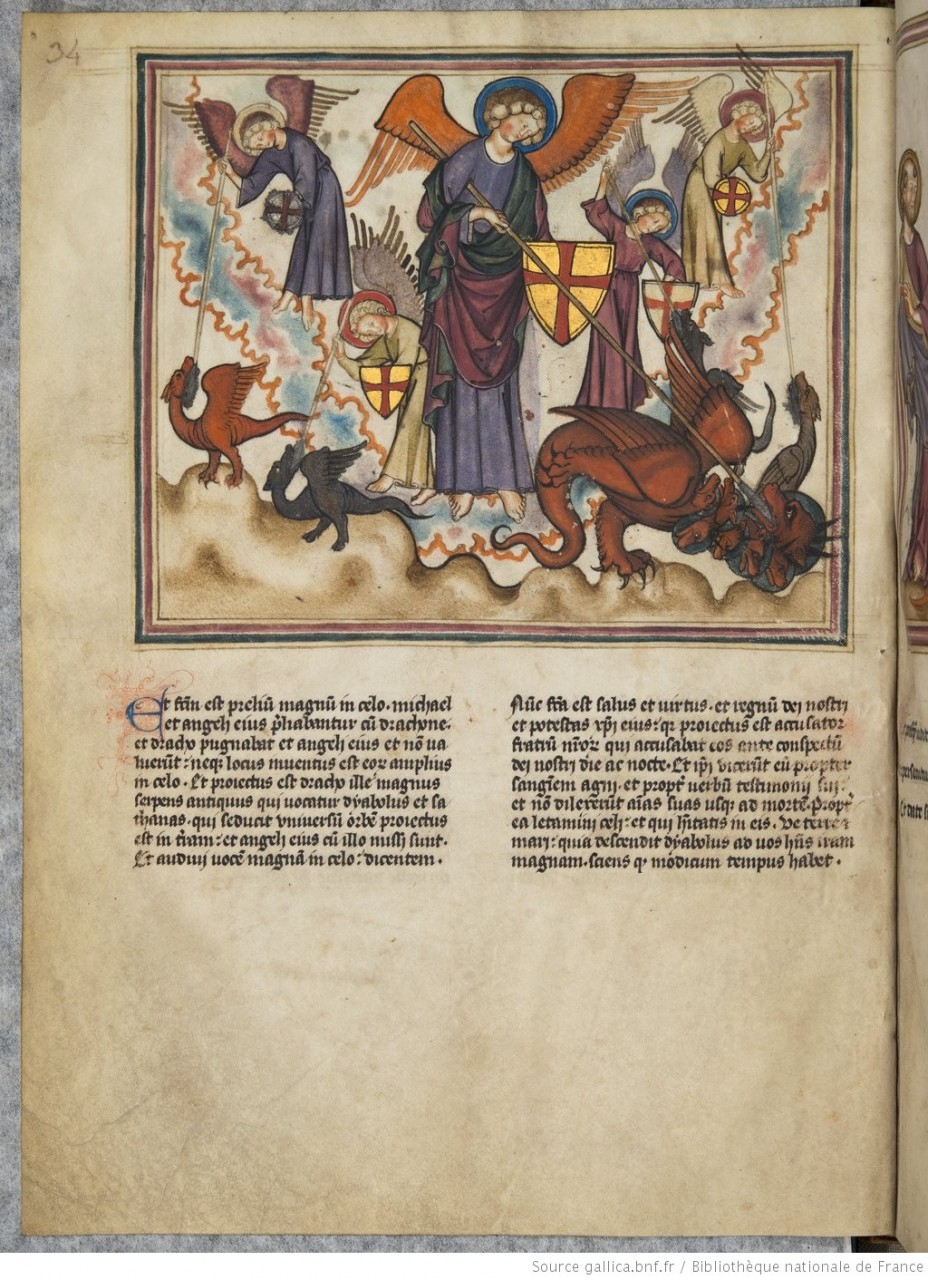 34
Et fc̄m est preliū magnū in celo. michael
et angeli eius p̄liabantur cū drachone.
et dracho pugnabat et angeli eius et nō ua
luerūt: neq; locus inuentus est eor amplius
in celo. Et proiectus est dracho ille magnus
serpens antiquus qui uocatur dyabolus et sa
thanas. qui seducit vniuersū orbē proiectus
est in t̄ram: et angeli eius cū illo missi sunt.
Et audiui uocē magnā in celo: dicentem.
Nūc fc̄a est salus et uirtus. et regnū dei nostri
et potestas xp̄i eius: qr proiectus est accusator
fratrū nr̄or qui accusabat eos ante conspectū
dei nostri die ac nocte. Et ip̄i uicerūt eū propter
sangīem agni. et propt̄ uerbū testimonii sui:
et nō dilexerūt aīas suas usq; ad mortē. Propt̄
ea letamini celi: et qui hītatis in eis. Ve terre
mari: quia descendit dyabolus ad uos hn̄s iram
magnam. sciens q modicum tempus habet.
Source gallica.bnf.fr / Bibliothèque nationale de France